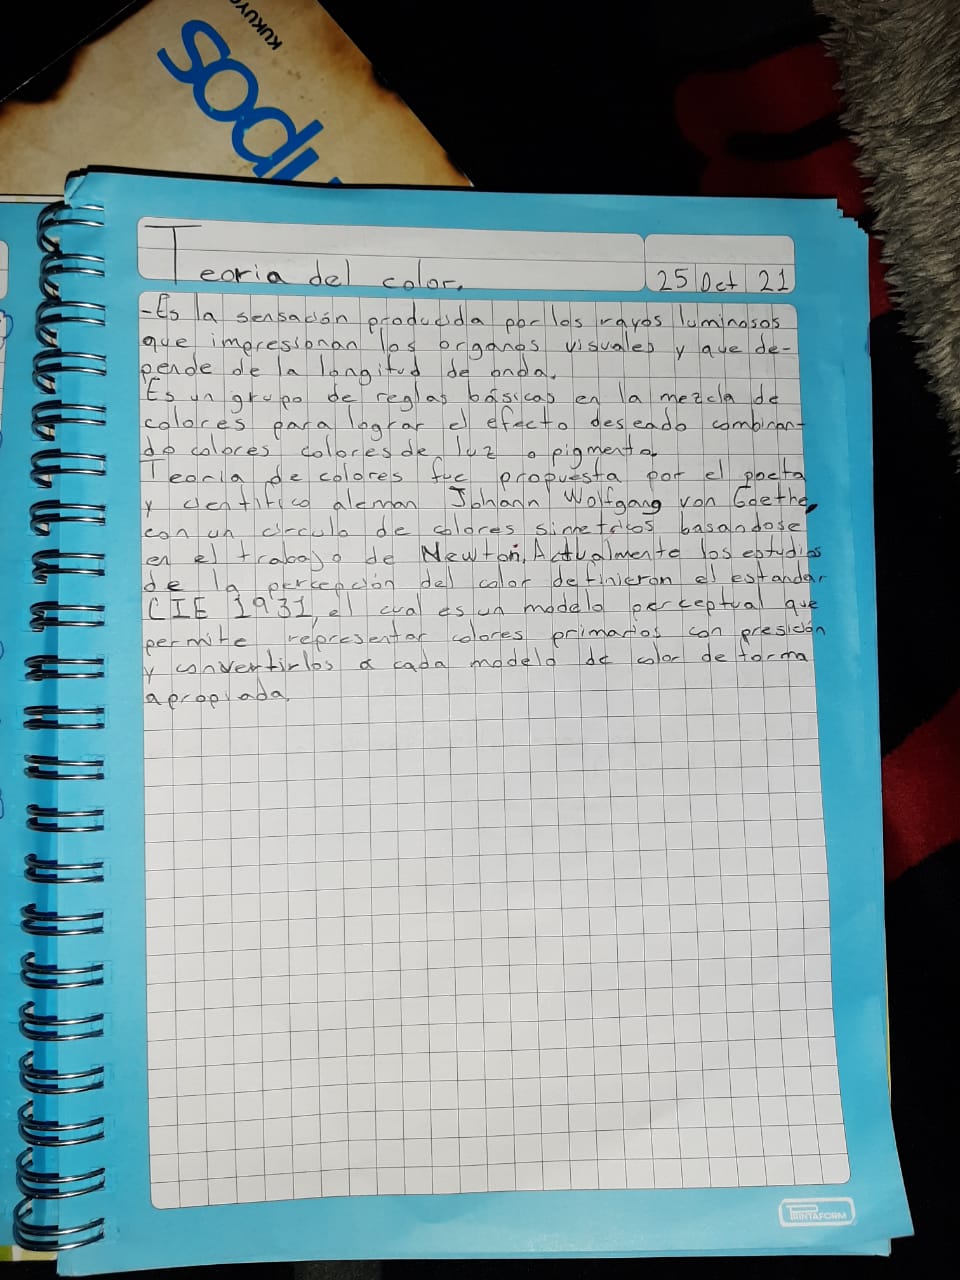 KUKUYO
Teoria del color.
25 Oct 21
-Es la sensación producida por los rayos luminosos
que impresionan los organos visuales y que de-
pende de la longitud de onda.
Es un grupo de reglas básicas en la mezcla de
colores para lograr el efecto deseado combinan-
do colores colores de luz o pigmento.
Teoria de colores fue propuesta por el poeta
y cientifico aleman Johann Wolfgang von Goethe,
con un circulo de colores simetricos basandose
en el trabajo de Newton. Actualmente los estudios
de la percepción del color definieron el estandar
CIE 1931, el cual es un modelo perceptual que
permite representar colores primarios con presición
y convertirlos a cada modelo de color de forma
apropiada.
PRINTAFORM